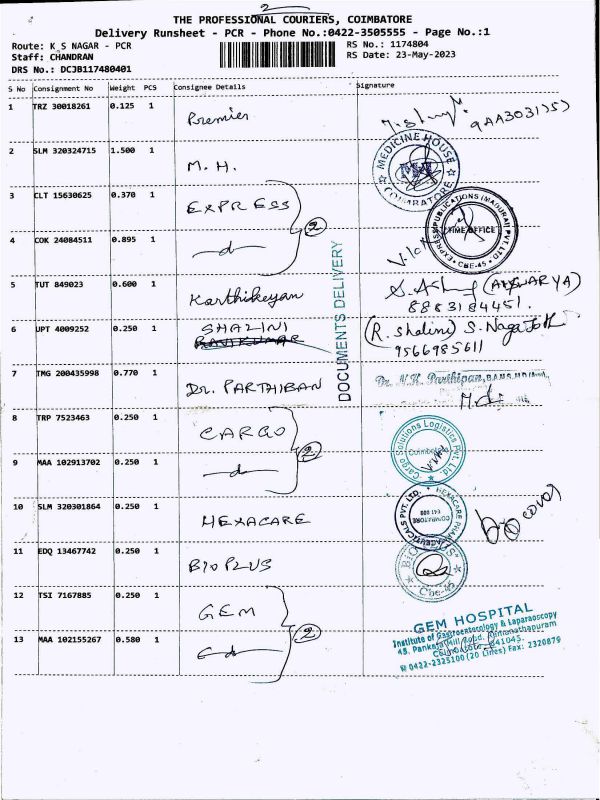 2
THE PROFESSIONAL COURIERS, COIMBATORE
Delivery Runsheet - PCR - Phone No.:0422-3505555 - Page No.:1
Route: K S NAGAR - PCR
Staff: CHANDRAN
DRS No.: DCJB117480401
RS No.: 1174804
RS Date: 23-May-2023
S No Consignment No Weight PCS Consignee Details Signature
1 TRZ 30018261 0.125 1 Premier
2 SLM 320324715 1.500 1 M. H. MEDICINE HOUSE COIMBATORE
3 CLT 15630625 0.370 1 EXPRESS
2
EXPRESS PUBLICATIONS (MADURAI) PVT. LTD. TIME OFFICE CBE-45
4 COK 24084511 0.895 1 -d-
5 TUT 849023 0.600 1 Karthikeyan (AISWARYA)
8883184451.
6 UPT 4009252 0.250 1 SHALINI (R. Shalini)
RAVIKUMAR
9566985611
DOCUMENTS DELIVERY
7 TMG 200435998 0.770 1 Dr. PARTHIBAN Dr. N.K. Parthipan,
8 TRP 7523463 0.250 1 CARGO Cargo Solutions Logistics Pvt. Ltd. Coimbatore
2
9 MAA 102913702 0.250 1 -d-
10 SLM 320301864 0.250 1 HEXACARE HEXACARE PHARMACEUTICALS PVT. LTD. COIMBATORE
11 EDQ 13467742 0.250 1 BIOPLUS BIOPLUS Cbe-45
12 TSI 7167885 0.250 1 GEM
2
13 MAA 102155267 0.580 1 -d-
GEM HOSPITAL
Institute of Gastroenterology & Laparaoscopy
45, Pankaja Mill Road, Ramanathapuram
Coimbatore - 641045.
0422-2325100 (20 Lines) Fax: 2320879